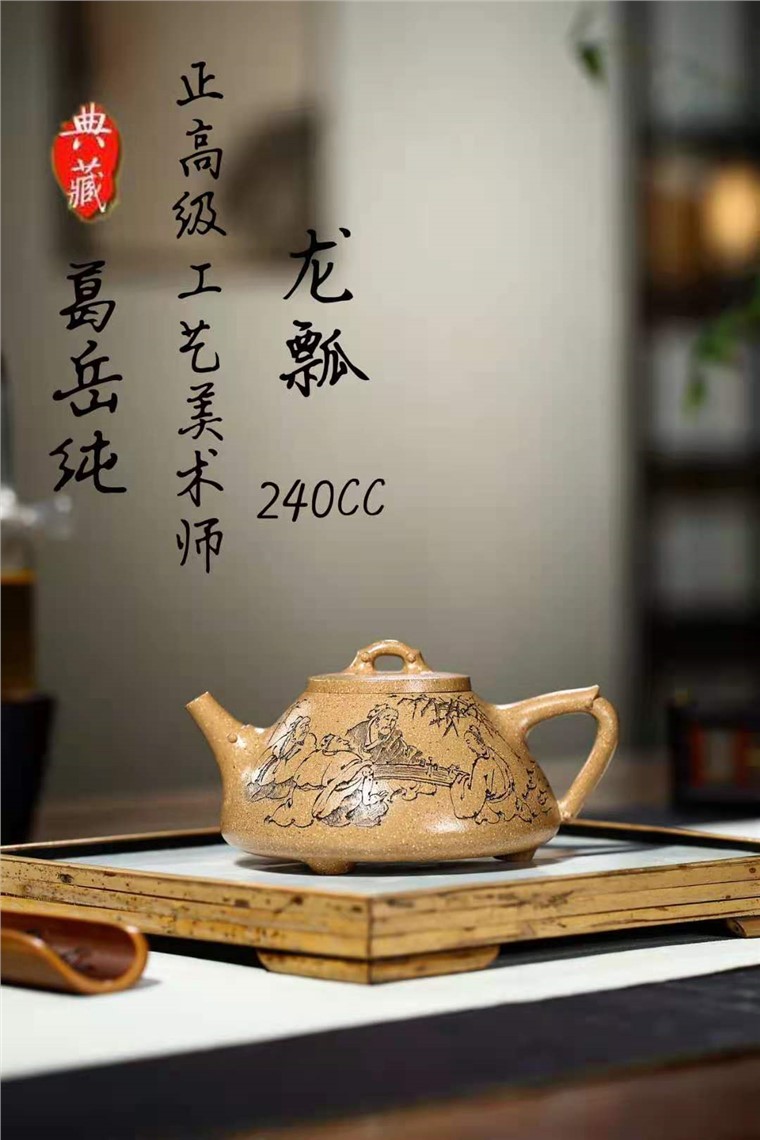 龙瓢
240CC
正高级工艺美术师
典藏
葛岳纯